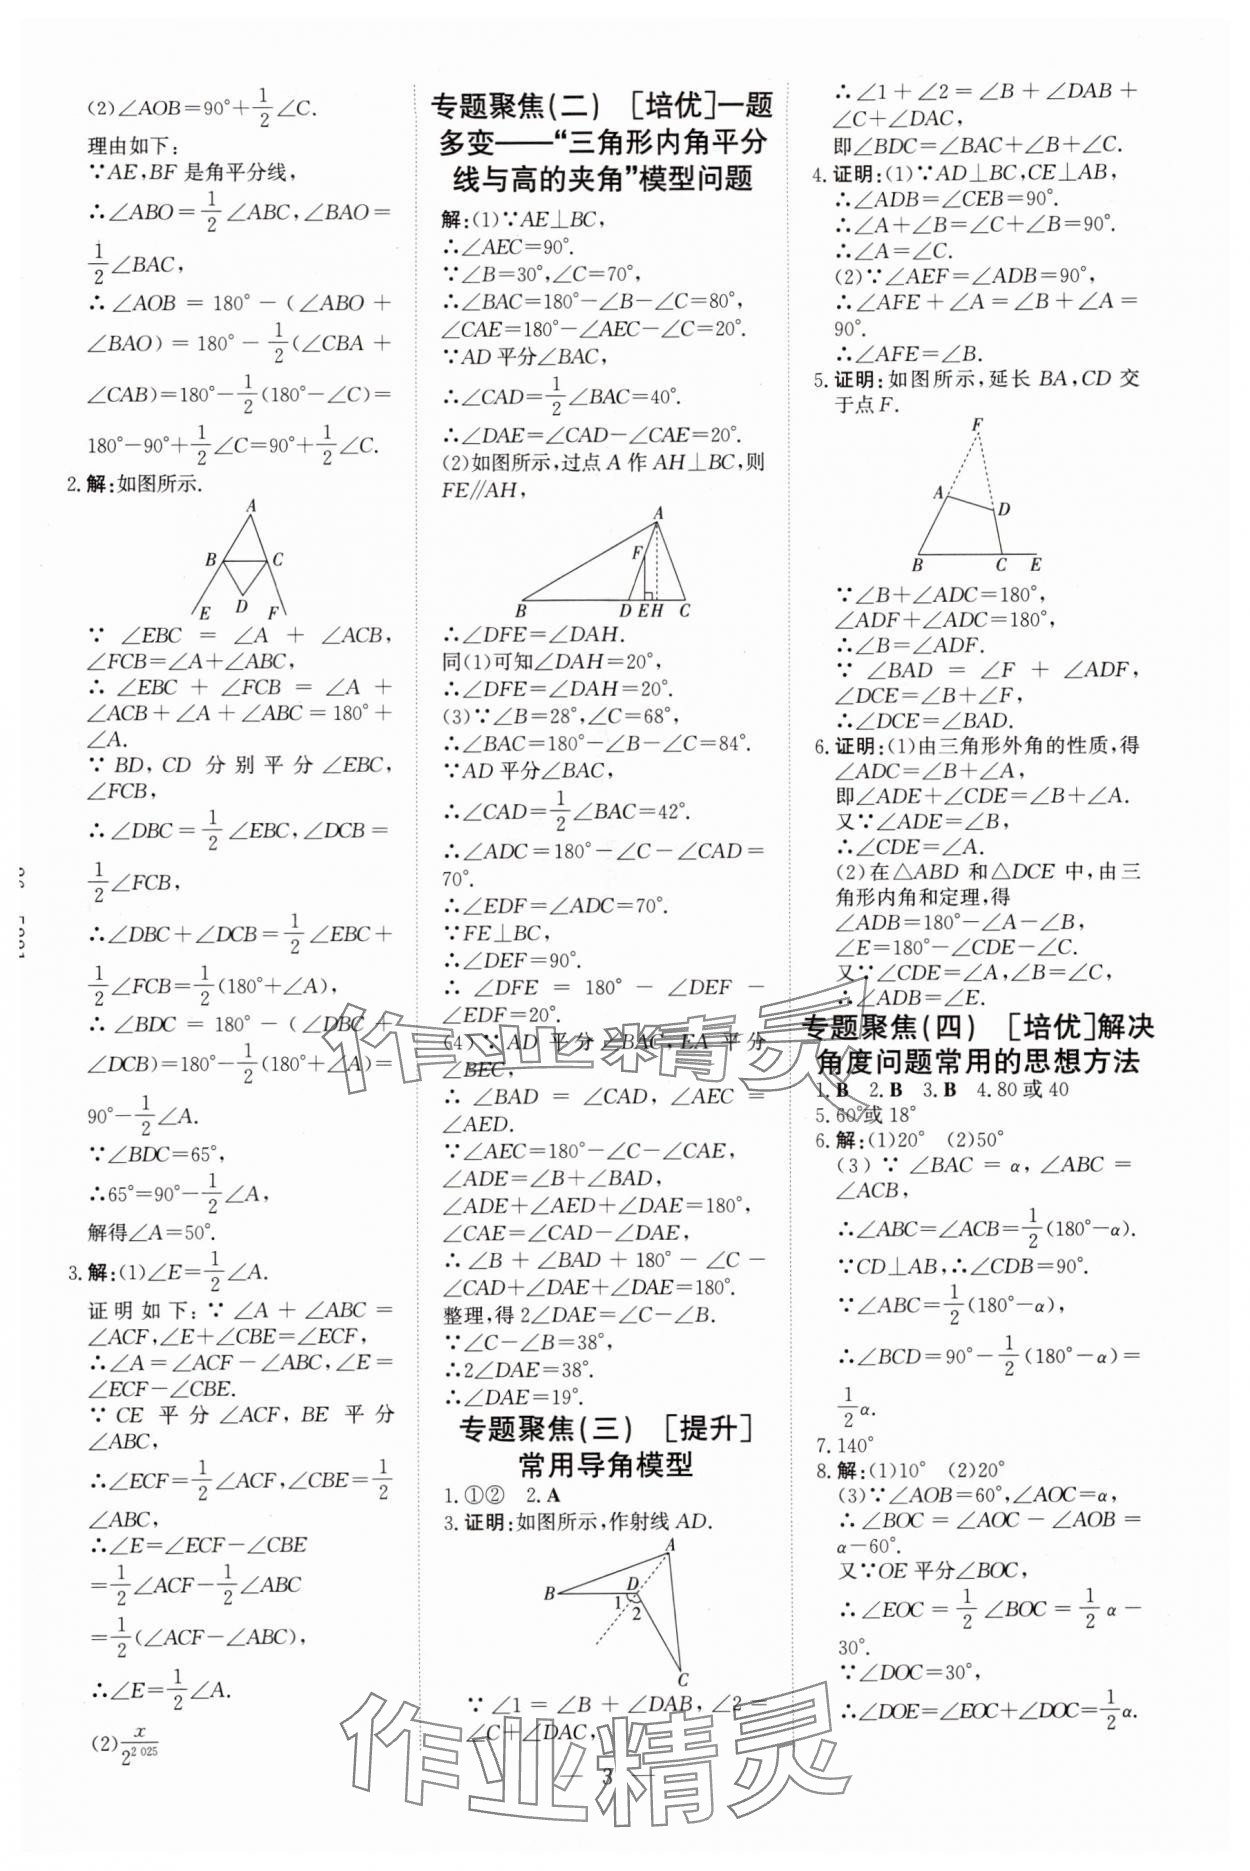 (2)∠AOB=90°+1/2∠C.
理由如下:
∵AE,BF 是角平分线,
∴∠ABO=1/2∠ABC,∠BAO=
1/2∠BAC,
∴∠AOB=180°-(∠ABO+
∠BAO)=180°-1/2(∠CBA+
∠CAB)=180°-1/2(180°-∠C)=
180°-90°+1/2∠C=90°+1/2∠C.
2.解:如图所示.
A
B C
E D F
∵∠EBC=∠A+∠ACB,
∠FCB=∠A+∠ABC,
∴∠EBC+∠FCB=∠A+
∠ACB+∠A+∠ABC=180°+
∠A.
∵BD,CD 分别平分∠EBC,
∠FCB,
∴∠DBC=1/2∠EBC,∠DCB=
1/2∠FCB,
∴∠DBC+∠DCB=1/2∠EBC+
1/2∠FCB=1/2(180°+∠A),
∴∠BDC=180°-(∠DBC+
∠DCB)=180°-1/2(180°+∠A)=
90°-1/2∠A.
∵∠BDC=65°,
∴65°=90°-1/2∠A,
解得∠A=50°.
3.解:(1)∠E=1/2∠A.
证明如下:∵∠A+∠ABC=
∠ACF,∠E+∠CBE=∠ECF,
∴∠A=∠ACF-∠ABC,∠E=
∠ECF-∠CBE.
∵CE 平分∠ACF,BE 平分
∠ABC,
∴∠ECF=1/2∠ACF,∠CBE=1/2
∠ABC,
∴∠E=∠ECF-∠CBE
=1/2∠ACF-1/2∠ABC
=1/2(∠ACF-∠ABC),
∴∠E=1/2∠A.
(2)x/2^2 025
专题聚焦(二) [培优]一题
多变——“三角形内角平分
线与高的夹角”模型问题
解:(1)∵AE⊥BC,
∴∠AEC=90°.
∵∠B=30°,∠C=70°,
∴∠BAC=180°-∠B-∠C=80°,
∠CAE=180°-∠AEC-∠C=20°.
∵AD 平分∠BAC,
∴∠CAD=1/2∠BAC=40°.
∴∠DAE=∠CAD-∠CAE=20°.
(2)如图所示,过点A作AH⊥BC,则
FE∥AH,
A
F
B D E H C
∴∠DFE=∠DAH.
同(1)可知∠DAH=20°,
∴∠DFE=∠DAH=20°.
(3)∵∠B=28°,∠C=68°,
∴∠BAC=180°-∠B-∠C=84°.
∵AD平分∠BAC,
∴∠CAD=1/2∠BAC=42°.
∴∠ADC=180°-∠C-∠CAD=
70°.
∴∠EDF=∠ADC=70°.
∵FE⊥BC,
∴∠DEF=90°.
∴∠DFE=180°-∠DEF-
∠EDF=20°.
(4)∵AD 平分∠BAC,EA 平分
∠BEC,
∴∠BAD=∠CAD,∠AEC=
∠AED.
∵∠AEC=180°-∠C-∠CAE,
∠ADE=∠B+∠BAD,
∠ADE+∠AED+∠DAE=180°,
∠CAE=∠CAD-∠DAE,
∴∠B+∠BAD+180°-∠C-
∠CAD+∠DAE+∠DAE=180°.
整理,得2∠DAE=∠C-∠B.
∵∠C-∠B=38°,
∴2∠DAE=38°.
∴∠DAE=19°.
专题聚焦(三) [提升]
常用导角模型
1.①② 2.A
3.证明:如图所示,作射线AD.
A
B D
1 2
C
∵∠1=∠B+∠DAB,∠2=
∠C+∠DAC,
∴∠1+∠2=∠B+∠DAB+
∠C+∠DAC,
即∠BDC=∠BAC+∠B+∠C.
4.证明:(1)∵AD⊥BC,CE⊥AB,
∴∠ADB=∠CEB=90°.
∴∠A+∠B=∠C+∠B=90°.
∴∠A=∠C.
(2)∵∠AEF=∠ADB=90°,
∴∠AFE+∠A=∠B+∠A=
90°.
∴∠AFE=∠B.
5.证明:如图所示,延长BA,CD交
于点F.
F
A D
B C E
∵∠B+∠ADC=180°,
∠ADF+∠ADC=180°,
∴∠B=∠ADF.
∵∠BAD=∠F+∠ADF,
∠DCE=∠B+∠F,
∴∠DCE=∠BAD.
6.证明:(1)由三角形外角的性质,得
∠ADC=∠B+∠A,
即∠ADE+∠CDE=∠B+∠A.
又∵∠ADE=∠B,
∴∠CDE=∠A.
(2)在△ABD 和△DCE中,由三
角形内角和定理,得
∠ADB=180°-∠A-∠B,
∠E=180°-∠CDE-∠C.
又∵∠CDE=∠A,∠B=∠C,
∴∠ADB=∠E.
专题聚焦(四) [培优]解决
角度问题常用的思想方法
1.B 2.B 3.B 4.80或40
5.60°或18°
6.解:(1)20° (2)50°
(3)∵∠BAC=α,∠ABC=
∠ACB,
∴∠ABC=∠ACB=1/2(180°-α).
∵CD⊥AB,∴∠CDB=90°.
∵∠ABC=1/2(180°-α),
∴∠BCD=90°-1/2(180°-α)=
1/2α.
7.140°
8.解:(1)10° (2)20°
(3)∵∠AOB=60°,∠AOC=α,
∴∠BOC=∠AOC-∠AOB=
α-60°.
又∵OE平分∠BOC,
∴∠EOC=1/2∠BOC=1/2α-
30°.
∵∠DOC=30°,
∴∠DOE=∠EOC+∠DOC=1/2α.
作业精灵
作业精灵
— 3 —